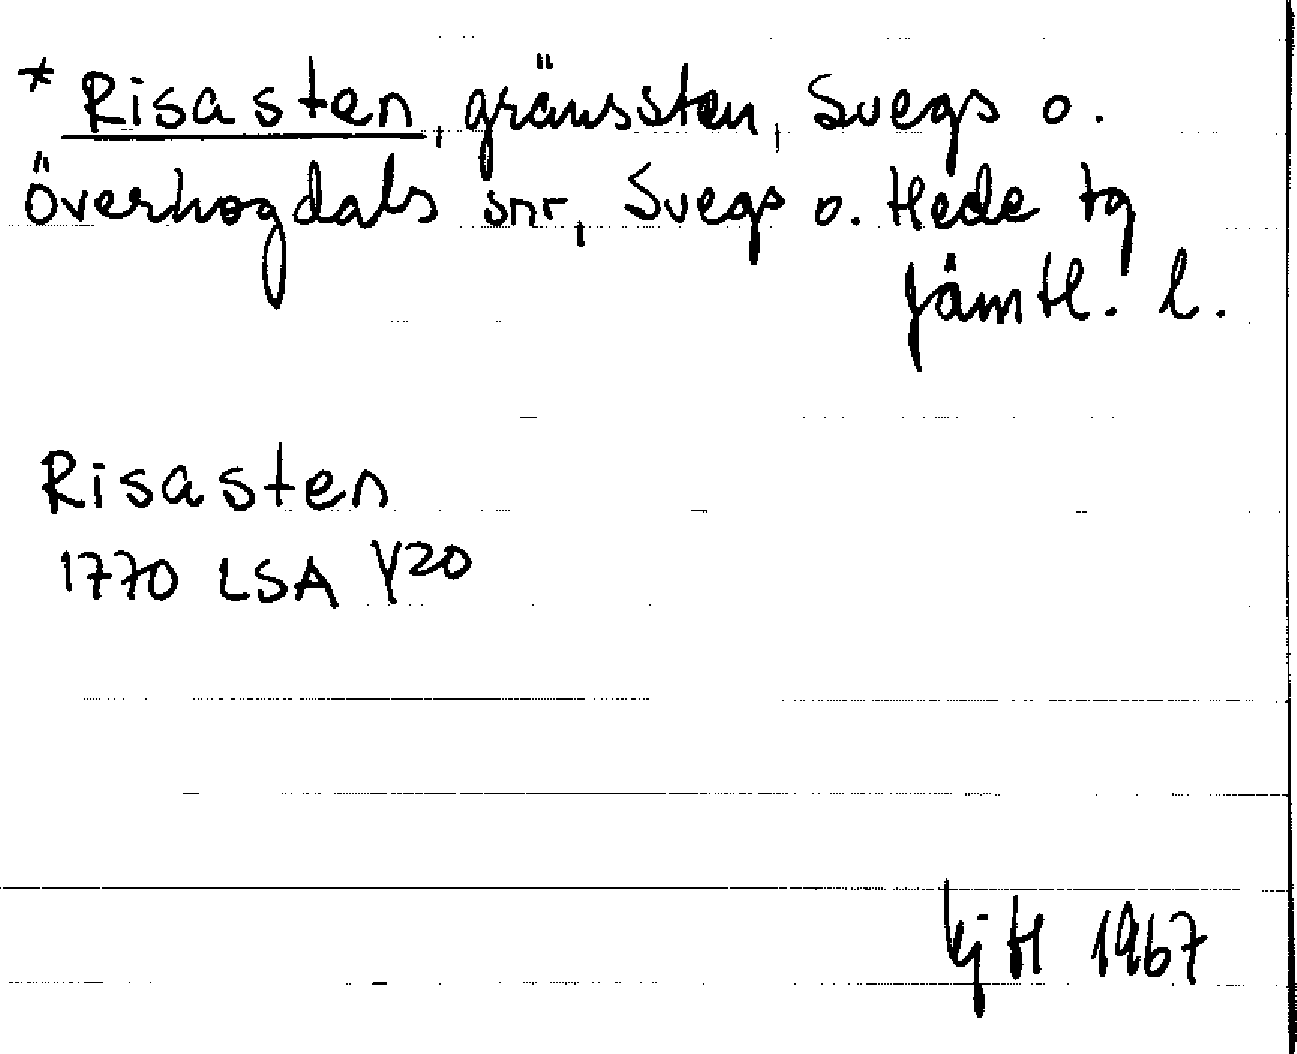 * Risasten, gränssten, Svegs o.
Överhogdals snr, Svegs o. Hede tg
Jämtl. l.
Risasten
1770 LSA Y20
1967